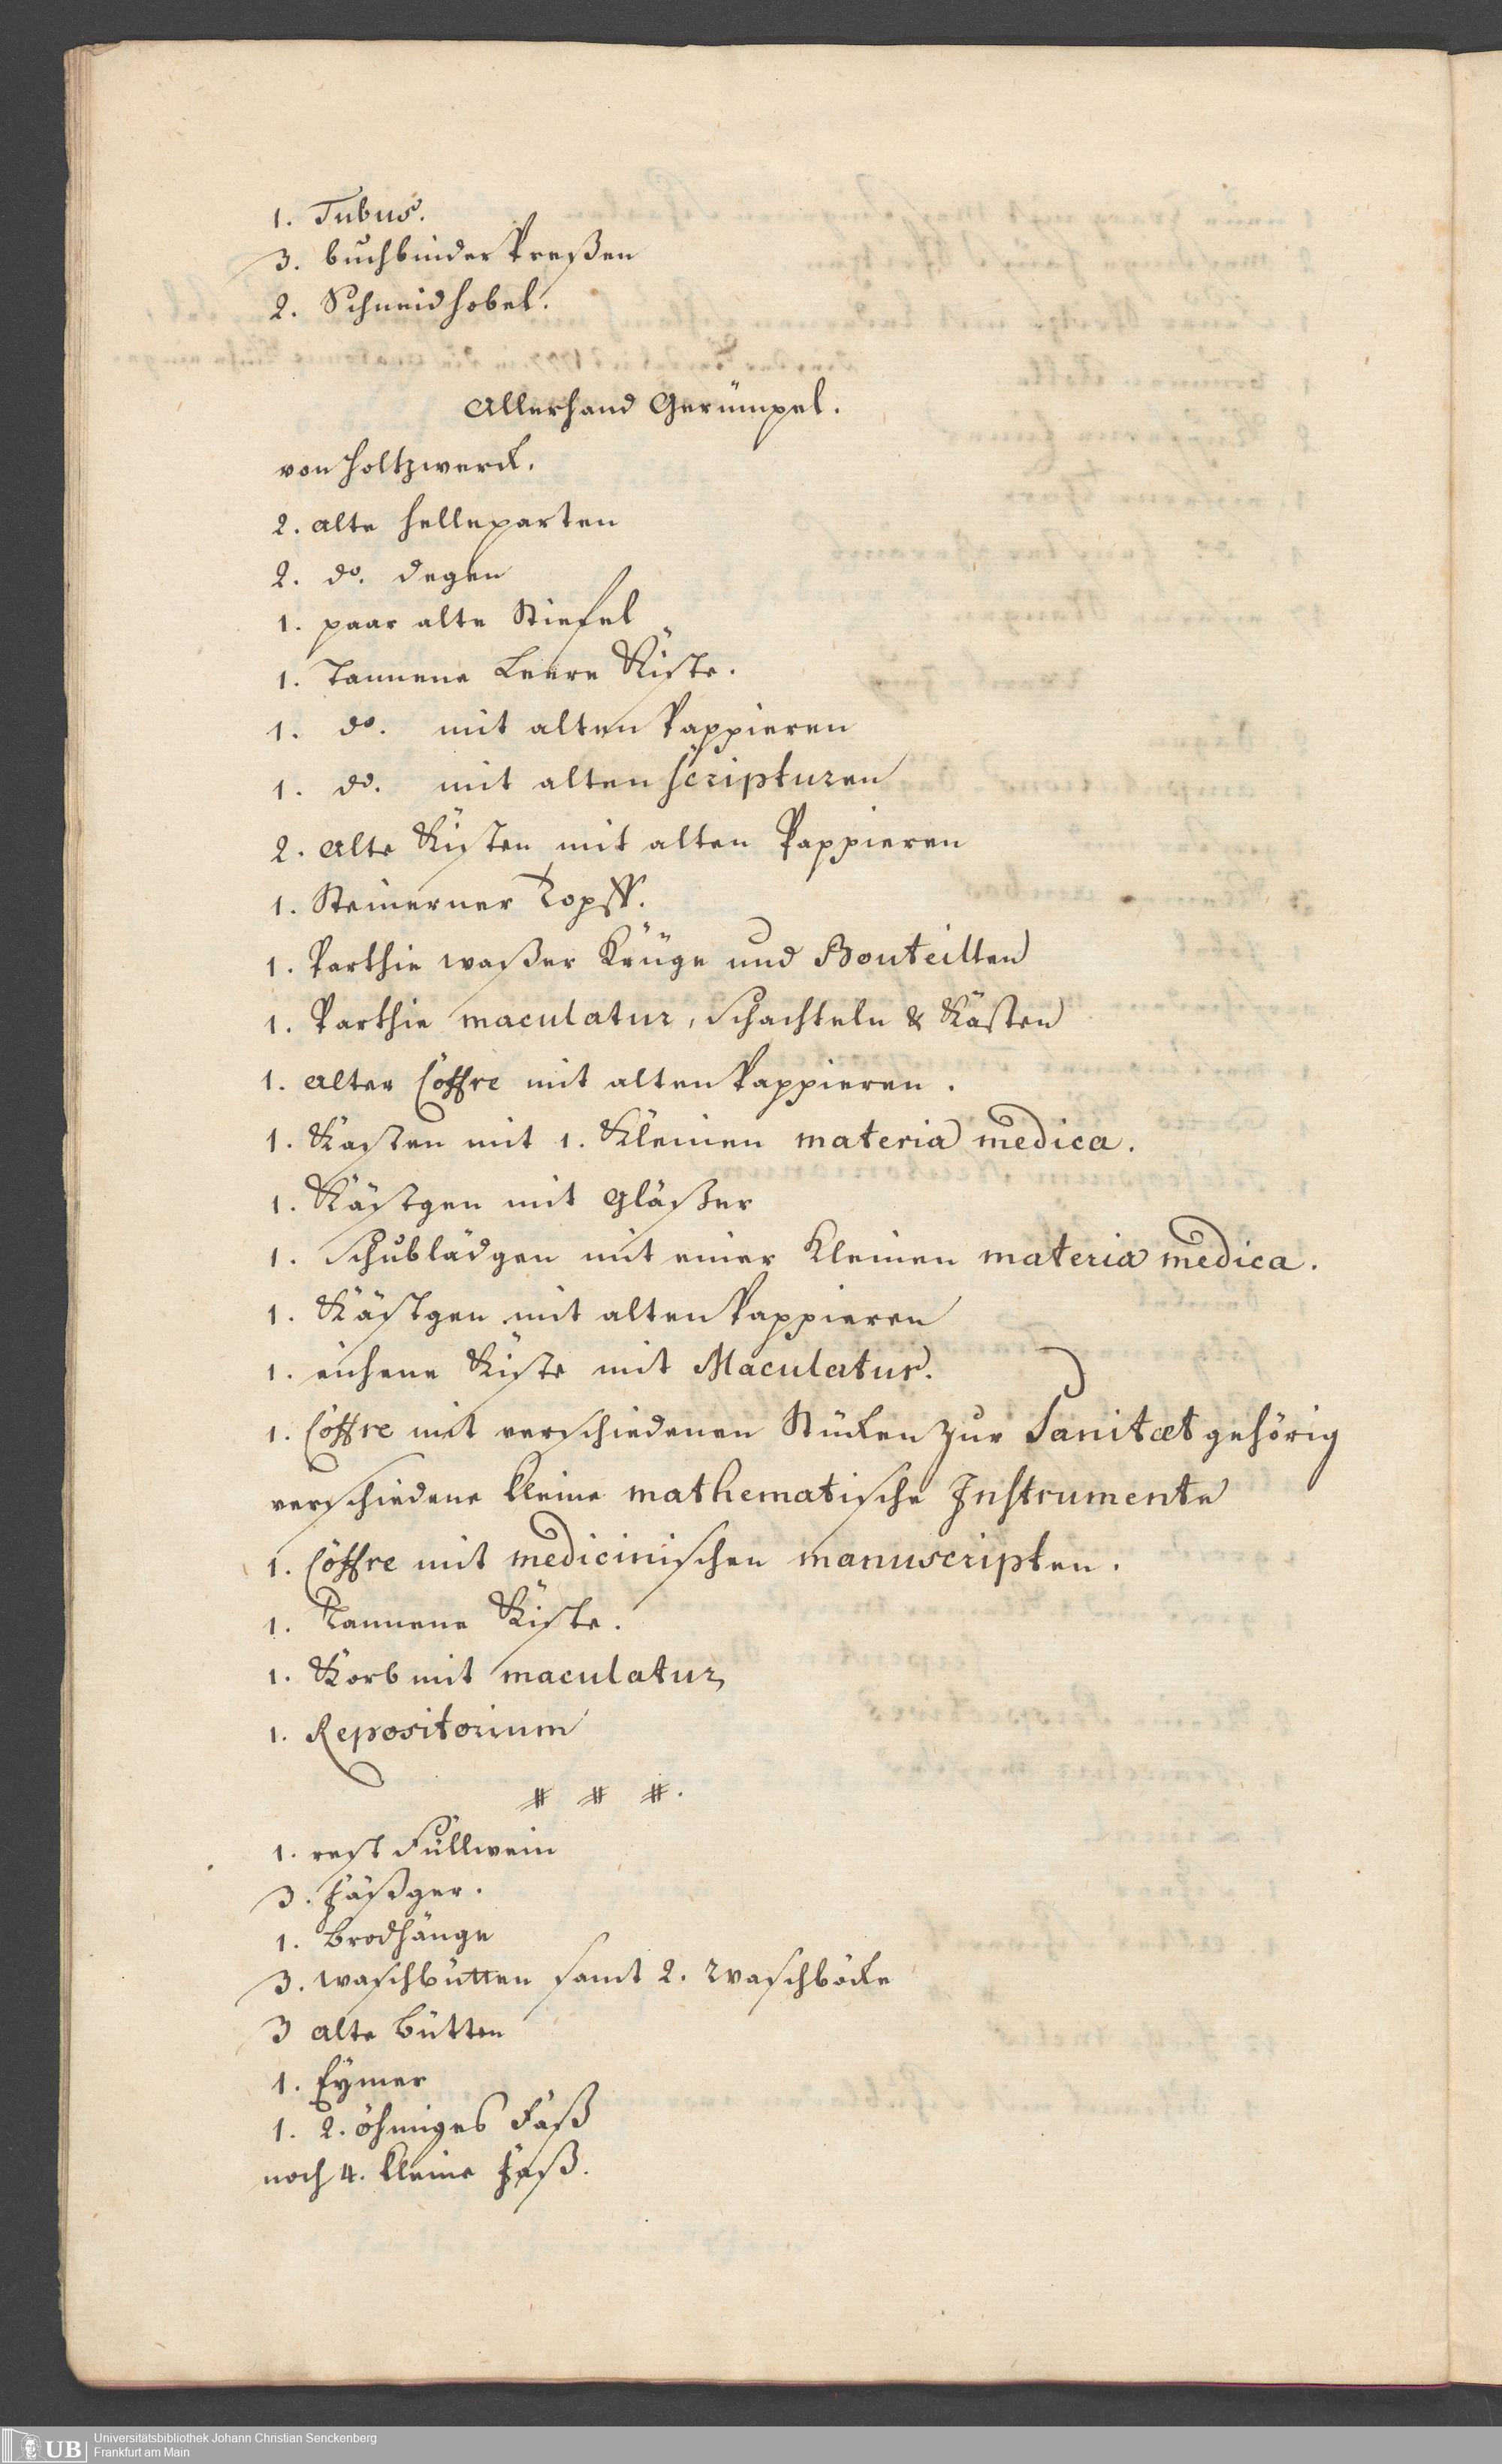 1. Tubus.
3. buchbinder Preßen
2. Schneidhobel.
Allerhand Gerümpel.
von Holtzwerck.
2. alte Helleparten
2. do. Degen
1. paar alte Stiefel
1. Tannene Leere Kiste.
1. do. mit alten Pappieren
1. do. mit alten scripturen
2. alte Kisten mit alten Pappieren
1. Steinerner Topff.
1. Parthie waßer Krüge und Bouteillen
1. Parthie maculatur, Schachteln & Kästen
1. alter Coffre mit alten Pappieren.
1. Kasten mit 1. Kleinen materia medica.
1. Kästgen mit Gläßer
1. Schublädgen mit einer Kleinen materia medica.
1. Kästgen mit alten Pappieren
1. eichene Kiste mit Maculatur.
1. Coffre mit verschiedenen Stücken zur Sanitæt gehörig
verschiedene kleine mathematische Instrumente
1. Coffre mit medicinischen manuscripten.
1. Tannene Kiste.
1. Korb mit maculatur
1. Repositorium
# # #.
1. rest Füllwein
3. Fäßger.
1. Brodhänge
3. waschbütten samt 2. Waschböcke
3 alte Bütten
1. Eymer
1. 2. öhmiges Faß
noch 4. kleine Faß.
UB
Universitätsbibliothek Johann Christian Senckenberg
Frankfurt am Main